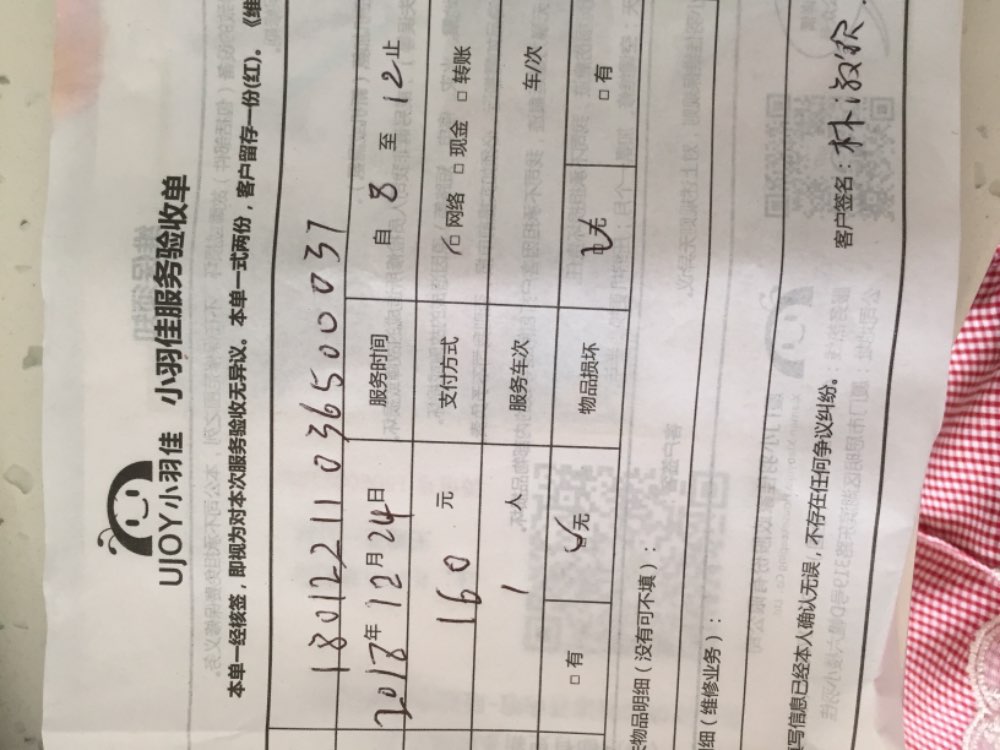 UJOY小羽佳 小羽佳服务验收单
本单一经核签，即视为对本次服务验收无异议。本单一式两份，客户留存一份(红)。《维
180122110365000037
2018年12月24日 服务时间 自 8 至 12止
160 元 支付方式 □网络 □现金 □转账
1 人 服务车次 车/次
□有 □无 物品损坏 □无 □有
物品明细（没有可不填）：
细（维修业务）：
写信息已经本人确认无误，不存在任何争议纠纷。 客户签名：林淑钦